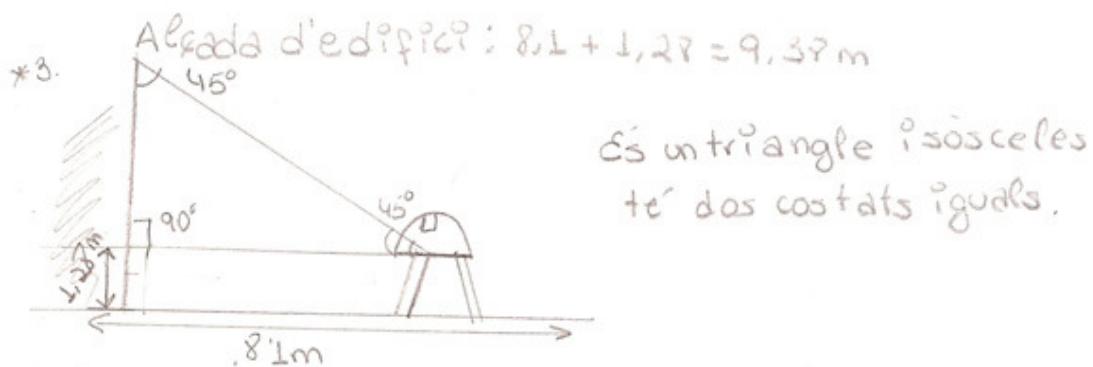 Alçada d'edifici: 8,1 + 1,28 = 9,38 m
*3.
45°
És un triangle isòsceles
té dos costats iguals.
45°
90°
1,28m
8'1m